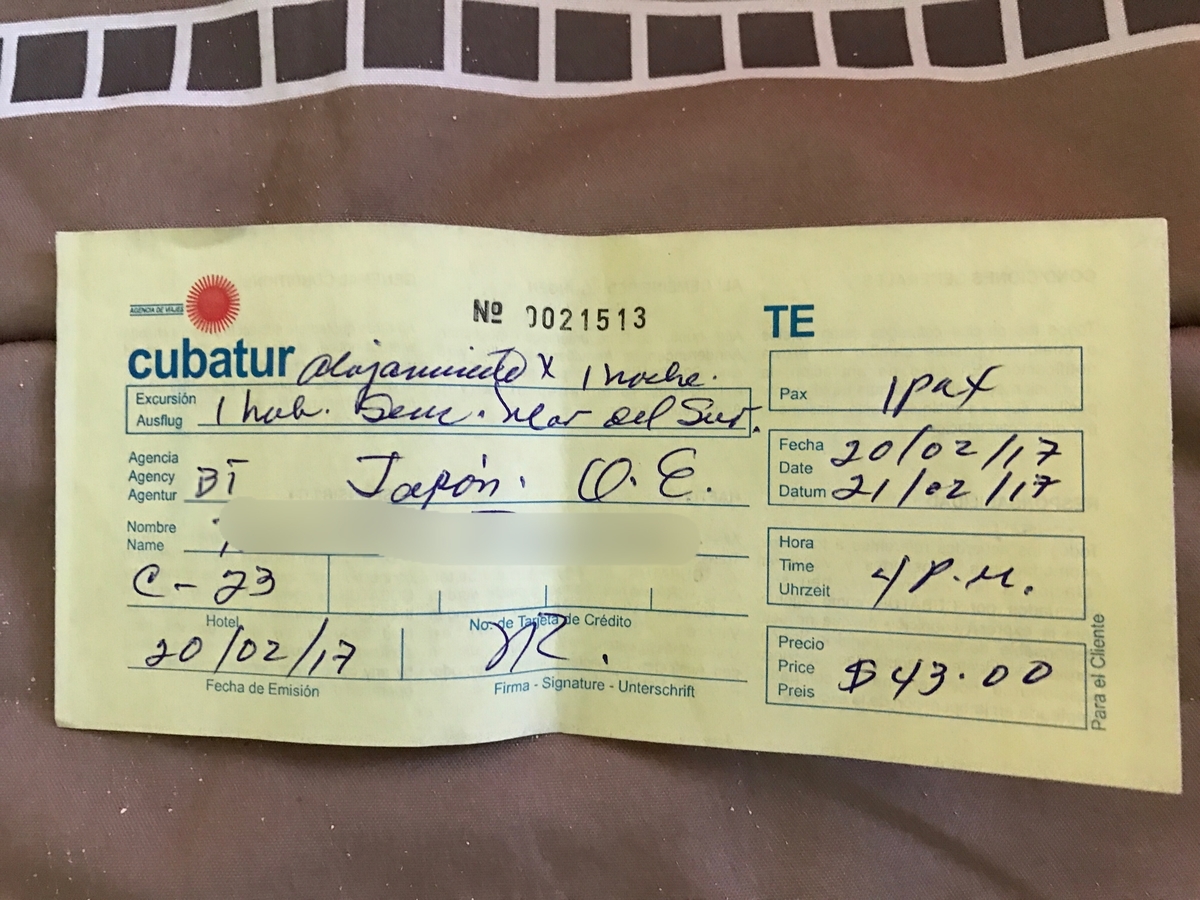 AGENCIA DE VIAJES
cubatur
Nº 0021513
TE
alojamiento x 1 noche.
Excursión
Ausflug
1 hab. Senc. Mar del Sur.
Pax
1 pax
Agencia
Agency
Agentur
BT Japón. O.E.
Fecha
Date
Datum
20/02/17
21/02/17
Nombre
Name
C-23
Hotel
No. de Tarjeta de Crédito
Hora
Time
Uhrzeit
4 P.M.
20/02/17
Fecha de Emisión
Firma - Signature - Unterschrift
Precio
Price
Preis
$43.00
Para el Cliente